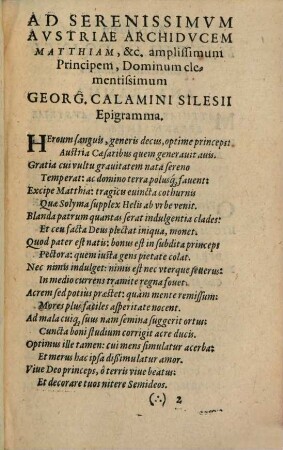 AD SERENISSIMVM
AVSTRIAE ARCHIDVCEM
MATTHIAM, &c. amplissimum
Principem, Dominum cle-
mentissimum
GEORG. CALAMINI SILESII
Epigramma.
HEroum sanguis, generis decus, optime princeps:
Austria Cæsaribus quem generauit auis.
Gratia cui vultu grauitatem nata sereno
Temperat: ac domino terra polusq́; fauent:
Excipe Matthia: tragicu euincta cothurnis
Qua Solyma supplex Helis ab vrbe venit.
Blanda patrum quantas serat indulgentia clades:
Et ceu facta Deus plectat iniqua, monet.
Quod pater est natis: bonus est in subdita princeps
Pectora: quem iusta gens pietate colat.
Nec nimis indulget: nimis est nec vterque seuerus:
In medio currens tramite regna fouet.
Acrem sed potius præstet: quàm mente remissum:
Mores plus faciles asperitate nocent.
Ad mala cuiq́; suus nam semina suggerit ortus:
Cuncta boni studium corrigit acre ducis.
Optimus ille tamen: cui mens simulatur acerba:
Et merus hac ipsa dissimulatur amor.
Viue Deo princeps, ô terris viue beatus:
Et decorare tuos nitere Semideos.
(∴) 2